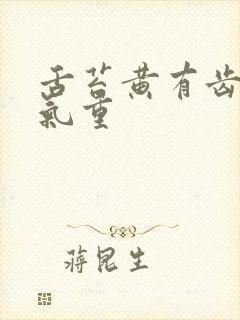 舌苔黄有齿
氣重
蒋昆生